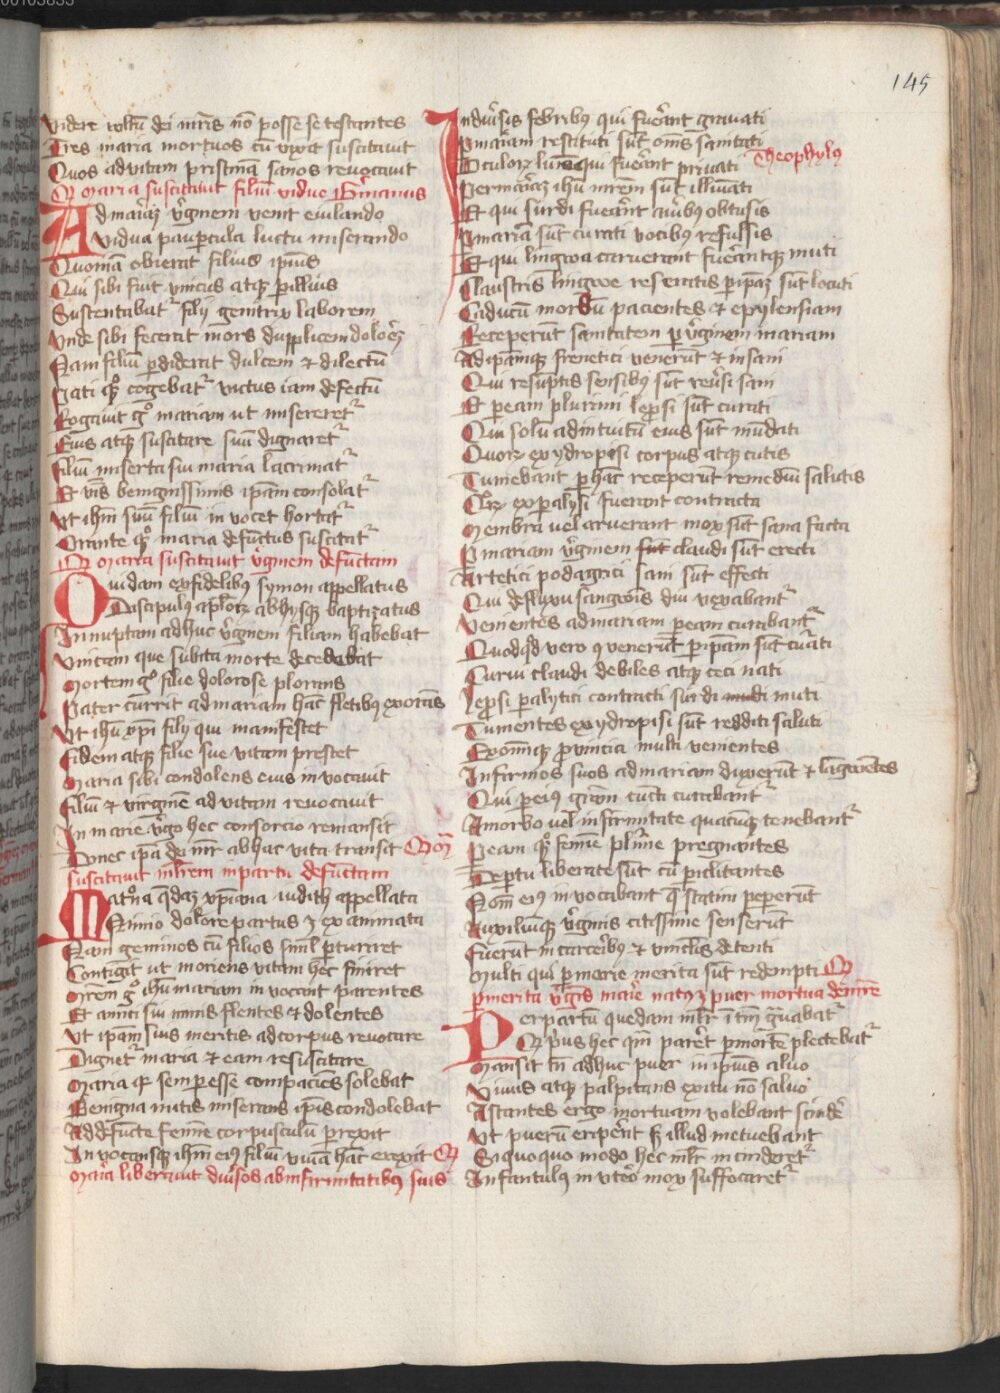 00103835
145
videre vultū dei mr̄is nō posse se testantes
Tres maria mortuos cū vixit suscitavit
Quos ad vitam pristinā sanos revocavit
Q maria suscitavit filiū vidue
Ad mariā v̓gīnem venit eiulando
Vidua paup̲cula luctu miserando
Quoniā obierat filius ip̄ius
Qui sibi fuit unicus atq̨ p̲
Sustentabat᷑ filij genitrix laborem
Unde sibi fecerat mors dupplicem dolorē
Nam filiū p̲diderat dulcem ⁊ dilectū
Pati cogebat᷑ victus iam defectū
Rogavit g̊ mariam ut misereret᷑
Eius atq̨ suscitare suū dignaret᷑
filiū miserta sui maria lacrimat᷑
Et benignissimis ip̄am consolat᷑
Ut ih̄m suū filiū in vocet hortat᷑
Orante maria defūctus suscitat᷑
Q maria suscitavit v̓gīnem defūctam
Quidam ex fidelibus symon appellatus
Discipulus ap̄loꝝ ab hysq̨ baptizatus
Innuptam adhuc v̓gīnem filiam habebat
Unicam que subita morte decedebat
Mortem g̊ filie dolorose plorans
Pater currit ad mariam hac fletibꝯ exorās
Ut ih̄u xp̄i filij qui manifestet
fidem atq̨ filie sue vitam prestet
Maria sibi condolens eius invocavit
filiū ⁊ virginē ad vitam revocavit
In marie v̓go hec consorcio remansit
Donec ip̄a dei mr̄ ab hac vita transit
suscitavit mr̄em in partu defūctam
Matrōa q̄daȝ xp̄iana iudith appellata
Nimio dolore partus ⁊ ex animata
Nam geminos cū filios sim̄l p̲turiret
Contigit ut moriens vitam hec finiret
Mr̄em g̊ ih̄u mariam in vocant parentes
Et amici sui nimis flentes ⁊ dolentes
Ut ip̄am suis meritis ad corpus revocare
Dignet᷑ maria ⁊ eam resuscitare
Maria semp̲ esse compaciēs solebat
Benigna mitis miserans ip̄is condolebat
Ad defūcte femīe corpusculū prexit
In vocansq̨ ih̄m eiꝯ filiū vivā hāc erexit Q
maria liberavit div̓sos ab infirmitatibꝯ suis
In div̓sis febribꝯ qui fuerāt gravati
P̲ mariam restituti sūt om̄s sanitati
Oculoꝝ lumīe qui fuerāt privati Theophylꝯ
Per mariaȝ ih̄u mr̄em sūt illuīati
Et qui surdi fuerāt aurībꝯ obtusis
P̲ mariā sūt curati vocibus refusis
Et qui lingwa caruerant fuerātq̨ muti
Claustris lingwe reseratis p̲ ip̄aȝ sūt locuti
Caducū morbū pacientes ⁊ epylensiam
Receperūt sanitatem p̲ v̓gīnem mariam
Ad ip̄amq̨ frenetici venerūt ⁊ insani
Qui resūptis sensibus sūt rev̓si sani
Et p̲ eam plurimi lep̲si sūt curati
Qui solū ad intuitū eius sūt mūdati
Quoꝝ ex ydropisi corpus atq̨ cutis
Tumebant p̲ hāc receperūt remediū salutis
Quoꝝ ex paralysi fuerant contracta
Membra vel aruerant mox sūt sana facta
P̲ mariam v̓gīnem claudi sūt erecti
Artetici podagrici sani sūt effecti
Qui de fluxu sangwīs diu vexabant᷑
Venientes ad mariam p̲ eam curabant᷑
Quodq̨ vero venerūt p̲ ip̄am sūt curati
Curvi claudi debiles atq̨ ceci nati
Lep̲si paralytici contracti surdi muti
Tumentes ex ydropisi sūt redditi saluti
Ex om̄iq̨ provincia multi venientes
Infirmos suos ad mariam duxerūt ⁊ langwētes
Qui p̲ eiꝯ grām cūcti curabant᷑
A morbo vel infirmitate quacūq̨ tenebant᷑
P̲ eam femīe pl̄rīe pregnantes
De p̲tu liberate sūt cū p̲iclitantes
Nom̄ eiꝯ in vocabant q̄ statim pepererūt
Auxiliūq̨ v̓gīnis citissime senserūt
fuerūt in carceribꝯ ⁊ vinclis detenti
Multi qui p̲ marie merita sūt redempti Q
p̲ merita v̓gīs marie natꝯ ē puer mortua de mr̄e
Per partū quedam ml̓r gravabat᷑
hec qn̄ parēt p̲ morte plectebat᷑
Mansit tn̄ adhuc puer in ip̄ius alvo
Vivus atq̨ palpitans exitu nō salvo
Astantes ergo mortuam volebant scīdē
Ut puerū erip̲ent sȝ illud metuebant
Si quoquo modo hec ml̓r incideret᷑
Infantulꝯ in utēo mox suffocaret᷑